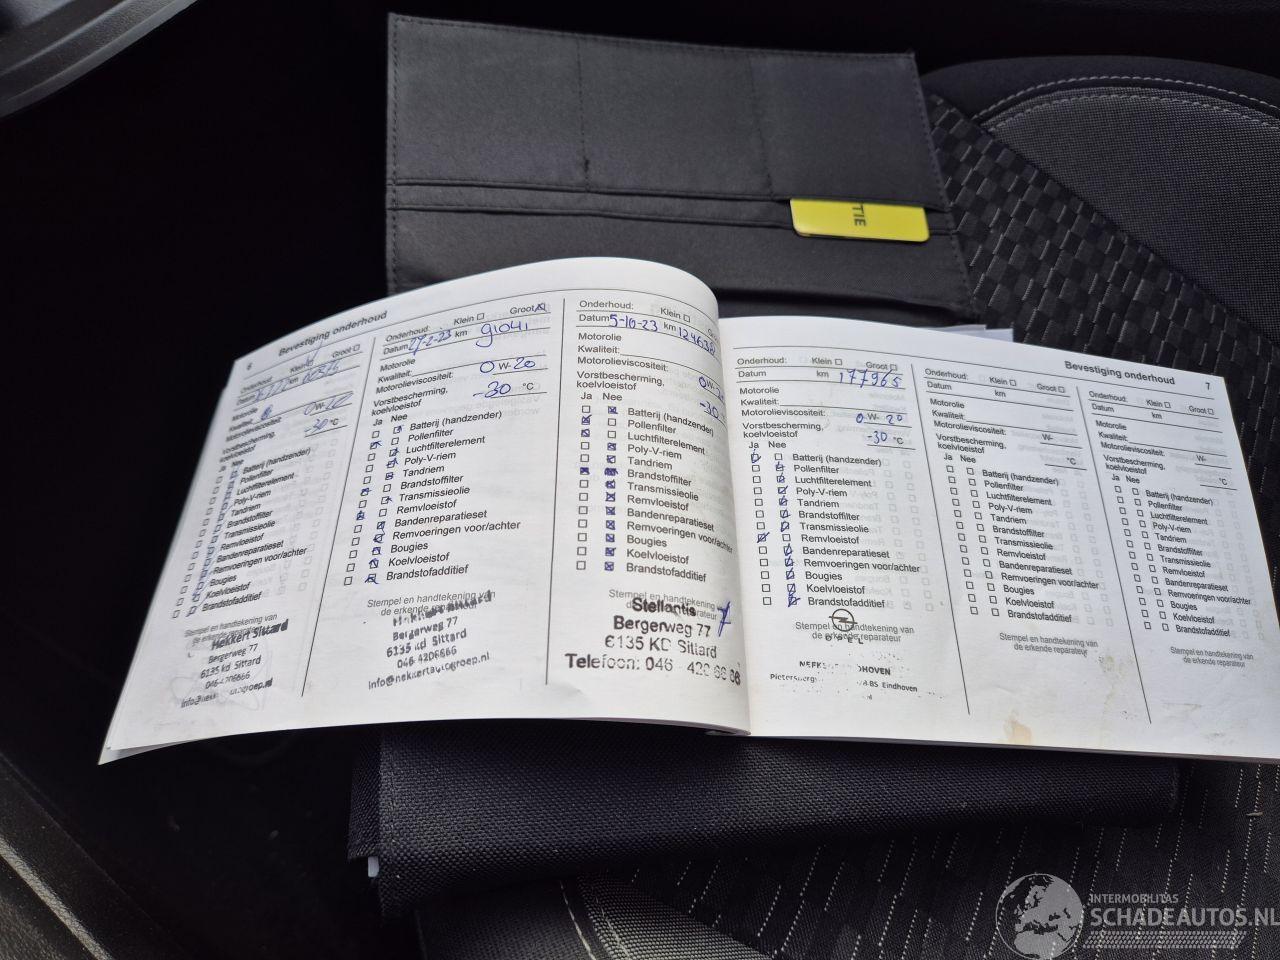 TIE
6
Bevestiging onderhoud
Onderhoud:
Klein
Groot
Datum
km
Motorolie
Kwaliteit:
Motorolieviscositeit:
0W-20
Vorstbescherming,
koelvloeistof
-30 °C
Ja Nee
Batterij (handzender)
Pollenfilter
Luchtfilterelement
Poly-V-riem
Tandriem
Brandstoffilter
Transmissieolie
Remvloeistof
Bandenreparatieset
Remvoeringen voor/achter
Bougies
Koelvloeistof
Brandstofadditief
Stempel en handtekening van
de erkende reparateur
Nekkert Sittard
Bergerweg 77
6135 kd Sittard
046-4206666
Onderhoud:
Klein
Groot
Datum 27-2-23 km 91041
Motorolie
Kwaliteit:
Motorolieviscositeit:
0W-20
Vorstbescherming,
koelvloeistof
-30 °C
Ja Nee
Batterij (handzender)
Pollenfilter
Luchtfilterelement
Poly-V-riem
Tandriem
Brandstoffilter
Transmissieolie
Remvloeistof
Bandenreparatieset
Remvoeringen voor/achter
Bougies
Koelvloeistof
Brandstofadditief
Stempel en handtekening van
de erkende
Bergerweg 77
6135 kd Sittard
046-4206666
info@nekkertautogroep.nl
Onderhoud:
Klein
Groot
Datum 5-10-23 km 124638
Motorolie
Kwaliteit:
Motorolieviscositeit:
0W-
Vorstbescherming,
koelvloeistof
-30
Ja Nee
Batterij (handzender)
Pollenfilter
Luchtfilterelement
Poly-V-riem
Tandriem
Brandstoffilter
Transmissieolie
Remvloeistof
Bandenreparatieset
Remvoeringen voor/achter
Bougies
Koelvloeistof
Brandstofadditief
Stempel en handtekening
reparateur
Stellantis
Bergerweg 77
6135 KD Sittard
Telefoon: 046 - 420 66 66
Bevestiging onderhoud
7
Onderhoud:
Klein
Groot
Datum
km 177965
Motorolie
Kwaliteit:
Motorolieviscositeit:
0W-20
Vorstbescherming,
koelvloeistof
-30 °C
Ja Nee
Batterij (handzender)
Pollenfilter
Luchtfilterelement
Poly-V-riem
Tandriem
Brandstoffilter
Transmissieolie
Remvloeistof
Bandenreparatieset
Remvoeringen voor/achter
Bougies
Koelvloeistof
Brandstofadditief
Stempel en handtekening van
de erkende reparateur
OPEL
Eindhoven
Onderhoud:
Klein
Groot
Datum
km
Motorolie
Kwaliteit:
Motorolieviscositeit:
W-
Vorstbescherming,
koelvloeistof
°C
Ja Nee
Batterij (handzender)
Pollenfilter
Luchtfilterelement
Poly-V-riem
Tandriem
Brandstoffilter
Transmissieolie
Remvloeistof
Bandenreparatieset
Remvoeringen voor/achter
Bougies
Koelvloeistof
Brandstofadditief
Stempel en handtekening van
de erkende reparateur
Onderhoud:
Klein
Groot
Datum
km
Motorolie
Kwaliteit:
Motorolieviscositeit:
W-
Vorstbescherming,
koelvloeistof
°C
Ja Nee
Batterij (handzender)
Pollenfilter
Luchtfilterelement
Poly-V-riem
Tandriem
Brandstoffilter
Transmissieolie
Remvloeistof
Bandenreparatieset
Remvoeringen voor/achter
Bougies
Koelvloeistof
Brandstofadditief
Stempel en handtekening van
de erkende reparateur
INTERMOBILITAS
SCHADEAUTOS.NL